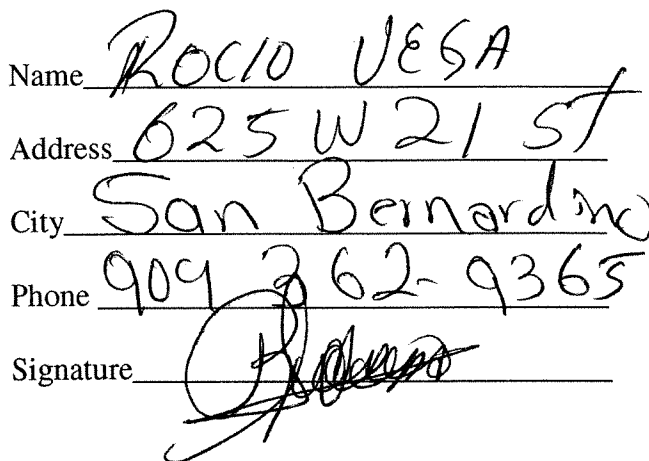 Name ROCIO VEGA
Address 625 W 21 ST
City San Bernardino
Phone 909 362-9365
Signature